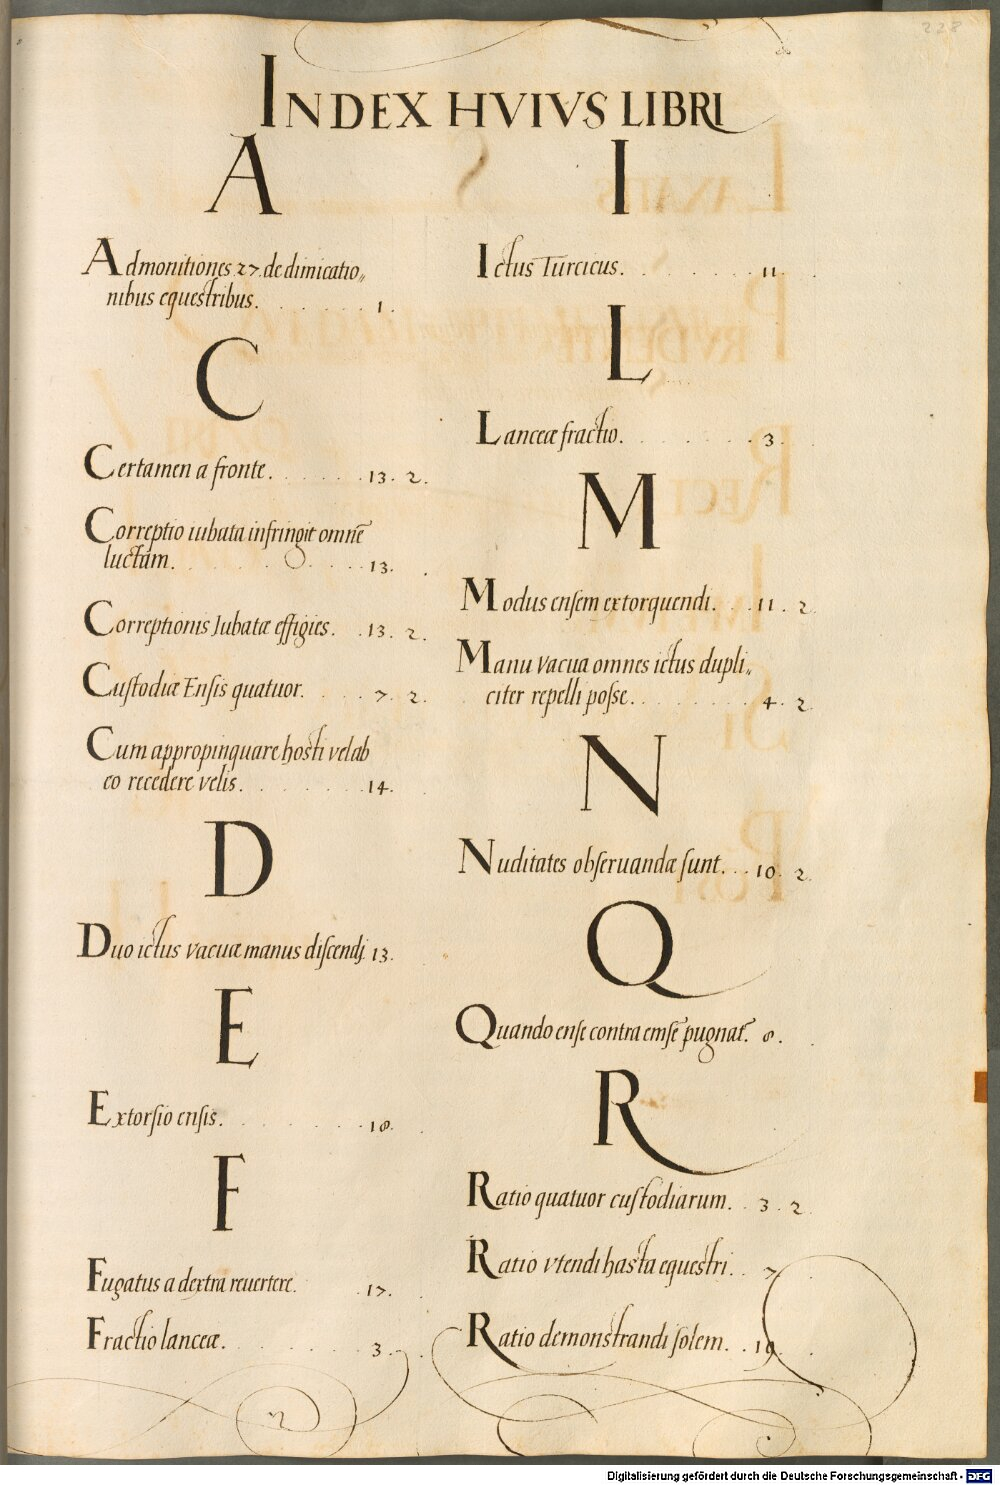 228
INDEX HVIVS LIBRI
A
Admonitiones 27 de dimicatio„
nibus equestribus. . . . . . . . 1 .
C
Certamen a fronte. . . . . . . 13 . 2 .
Correptio iubata infringit omnē
luctam. . . . . . . . . 13 .
Correptionis Iubatæ effigies. . . 13 . 2 .
Custodiæ Ensis quatuor. . . . . 7 . 2 .
Cum appropinquare hosti vel ab
eo recedere velis. . . . . . . 14 .
D
Duo ictus vacuæ manus discendj 13 .
E
Extorsio ensis. . . . . . . . 18 .
F
Fugatus a dextra reuertere. . 17 .
Fractio lanceæ. . . . . . . . 3 .
I
Ictus Turcicus. . . . . . . . 11 .
L
Lanceæ fractio. . . . . . . . 3 .
M
Modus ensem extorquendi. . . 11 . 2
Manu vacua omnes ictus dupli„
citer repelli posse. . . . . . . . 4 . 2
N
Nuditates obseruandæ sunt. . . 10 . 2 .
Q
Quando ense contra emsē pugnat̄. 8 .
R
Ratio quatuor custodiarum. . . 3 . 2 .
Ratio vtendi hasta equestri. . . 7
Ratio demonstrandi solem. . . 19
Digitalisierung gefördert durch die Deutsche Forschungsgemeinschaft - DFG